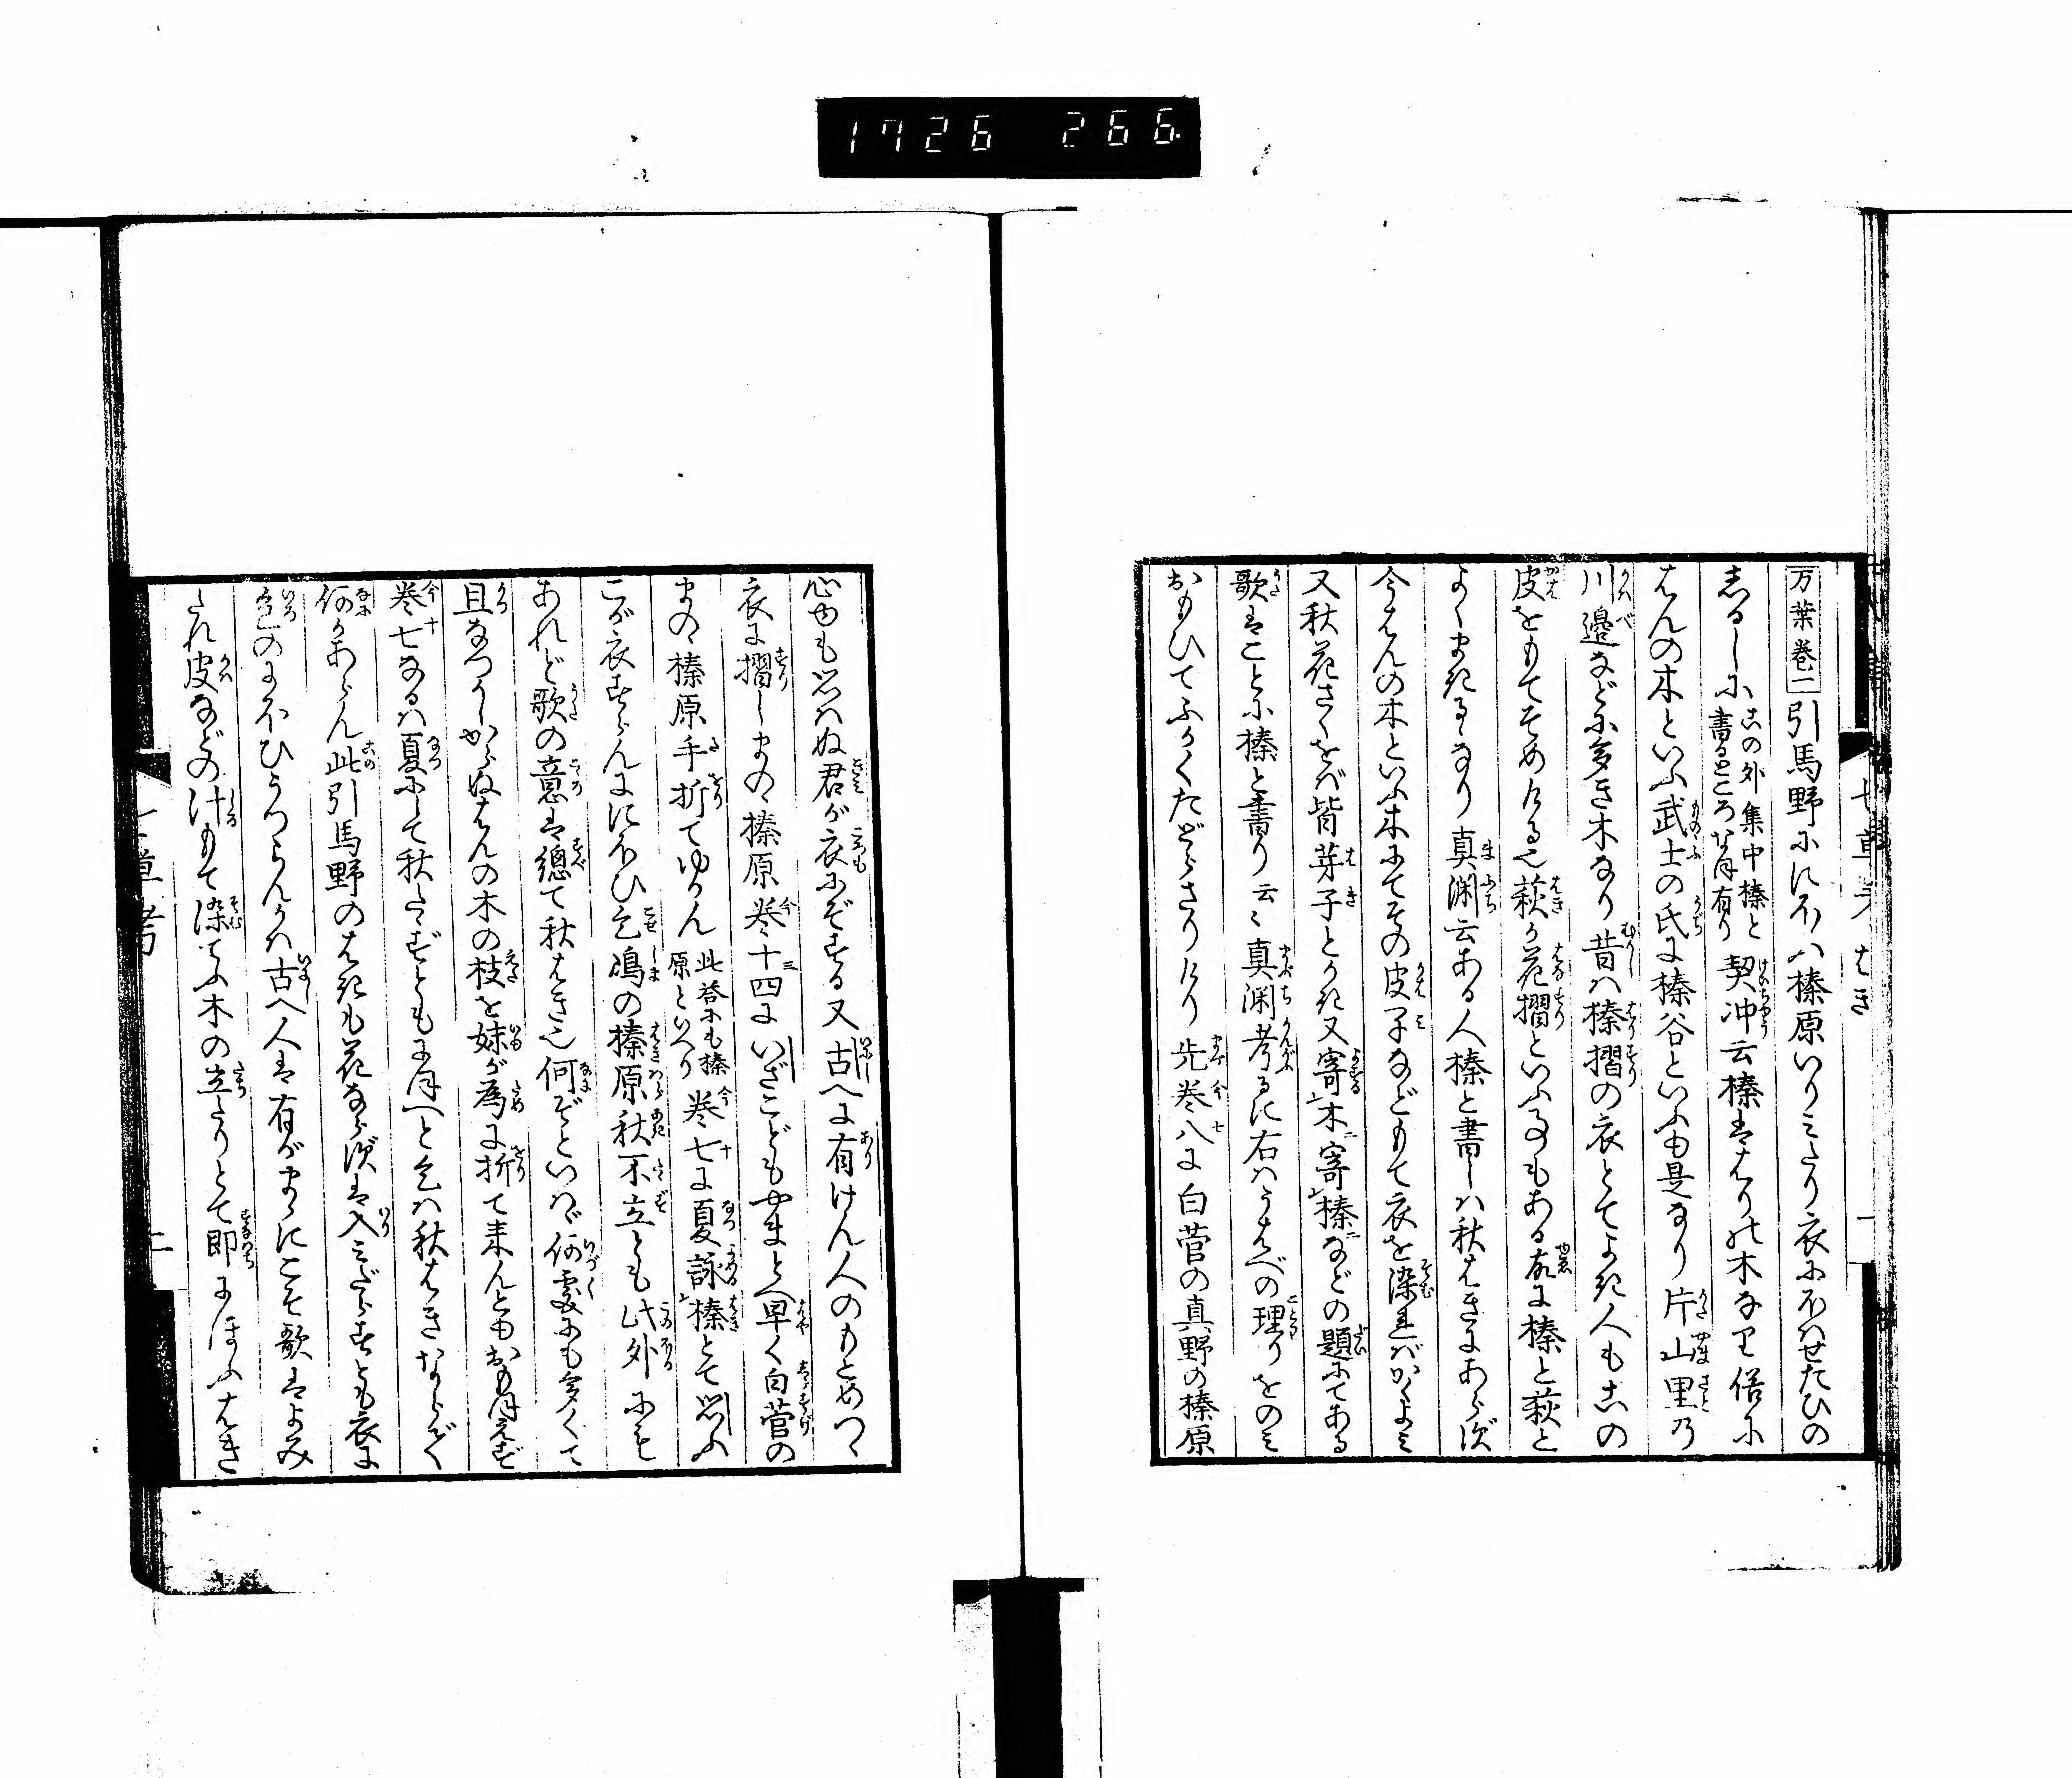 1726 266.
万葉巻一 引馬野ににほふ榛原いりみたり衣にほはせたひの
しるしに 此の外集中榛と書るところな有り 契沖云榛ははりの木なり俗に
はんの木といふ武士の氏に榛谷といふも是なり片山里乃
川邉などに多き木なり昔は榛摺の衣とてよき人もこの
皮をもてそめける也萩が花摺といふものもある故に榛と萩と
よくまきるゝなり真渊云ある人榛と書しは秋はきにあらず
今はんの木といふ木にてその皮子などもて衣を染ればかくよみ
又秋花さくをば皆芽子とかき又寄木寄榛などの題にてある
歌はことに榛と書り云々真渊考るに右はうはべの理りをのみ
おもひてふかくたどらさりけり先巻八に白菅の真野の榛原
七草考 はき 一
心ゆも思はぬ君が衣にぞする又古へに有けん人のもとめつゝ
衣に摺しまのゝ榛原巻十四にいざこどもやまとへ早く白菅の
まのゝ榛原手折てゆかん 此答にも榛原といへり 巻七に夏詠榛とて思ふ
こが衣すらんににほひこせ嶋の榛原秋不立とも此外にも
あれど歌の意は總て秋はき也何ぞといはゞ何處にも多くて
且なつかしからぬはんの木の枝を妹が為に折て来んともおもほえず
巻七なるは夏にして秋たゝずともにほへと乞は秋はきならずて
何かあらん此引馬野のはきも花ならずは入みだらすとも衣に
色のにほひうつらんかは古へ人は有がまゝにこそ歌はよみ
たれ皮などの汁もて染てふ木の立たりとて即にほふはき
七草考 二